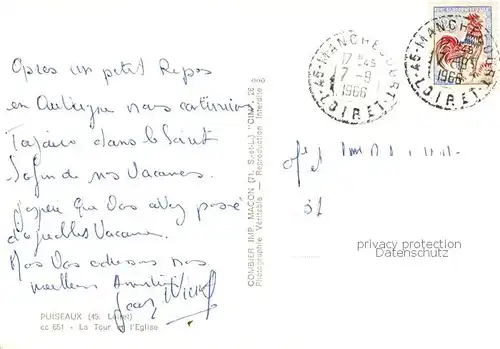 Après un petit Repos
en Auvergne nous continuons
Toujours dans le Loiret
la fin de nos Vacances.
J'espère que Vous avez passé
d'agréables Vacances.
Nous Vous adressons nos
meilleures Amitiés
PUISEAUX (45. Loiret)
cc 651 - La Tour et l'Eglise
COMBIER IMP. MACON (71. S.-et-L.) "CIM"
Photographie Véritable — Reproduction Interdite
45-MANCHECOURT
17H45
7-9
1966
LOIRET
45-MANCHECOURT
7-9
1966
LOIRET
privacy protection
Datenschutz